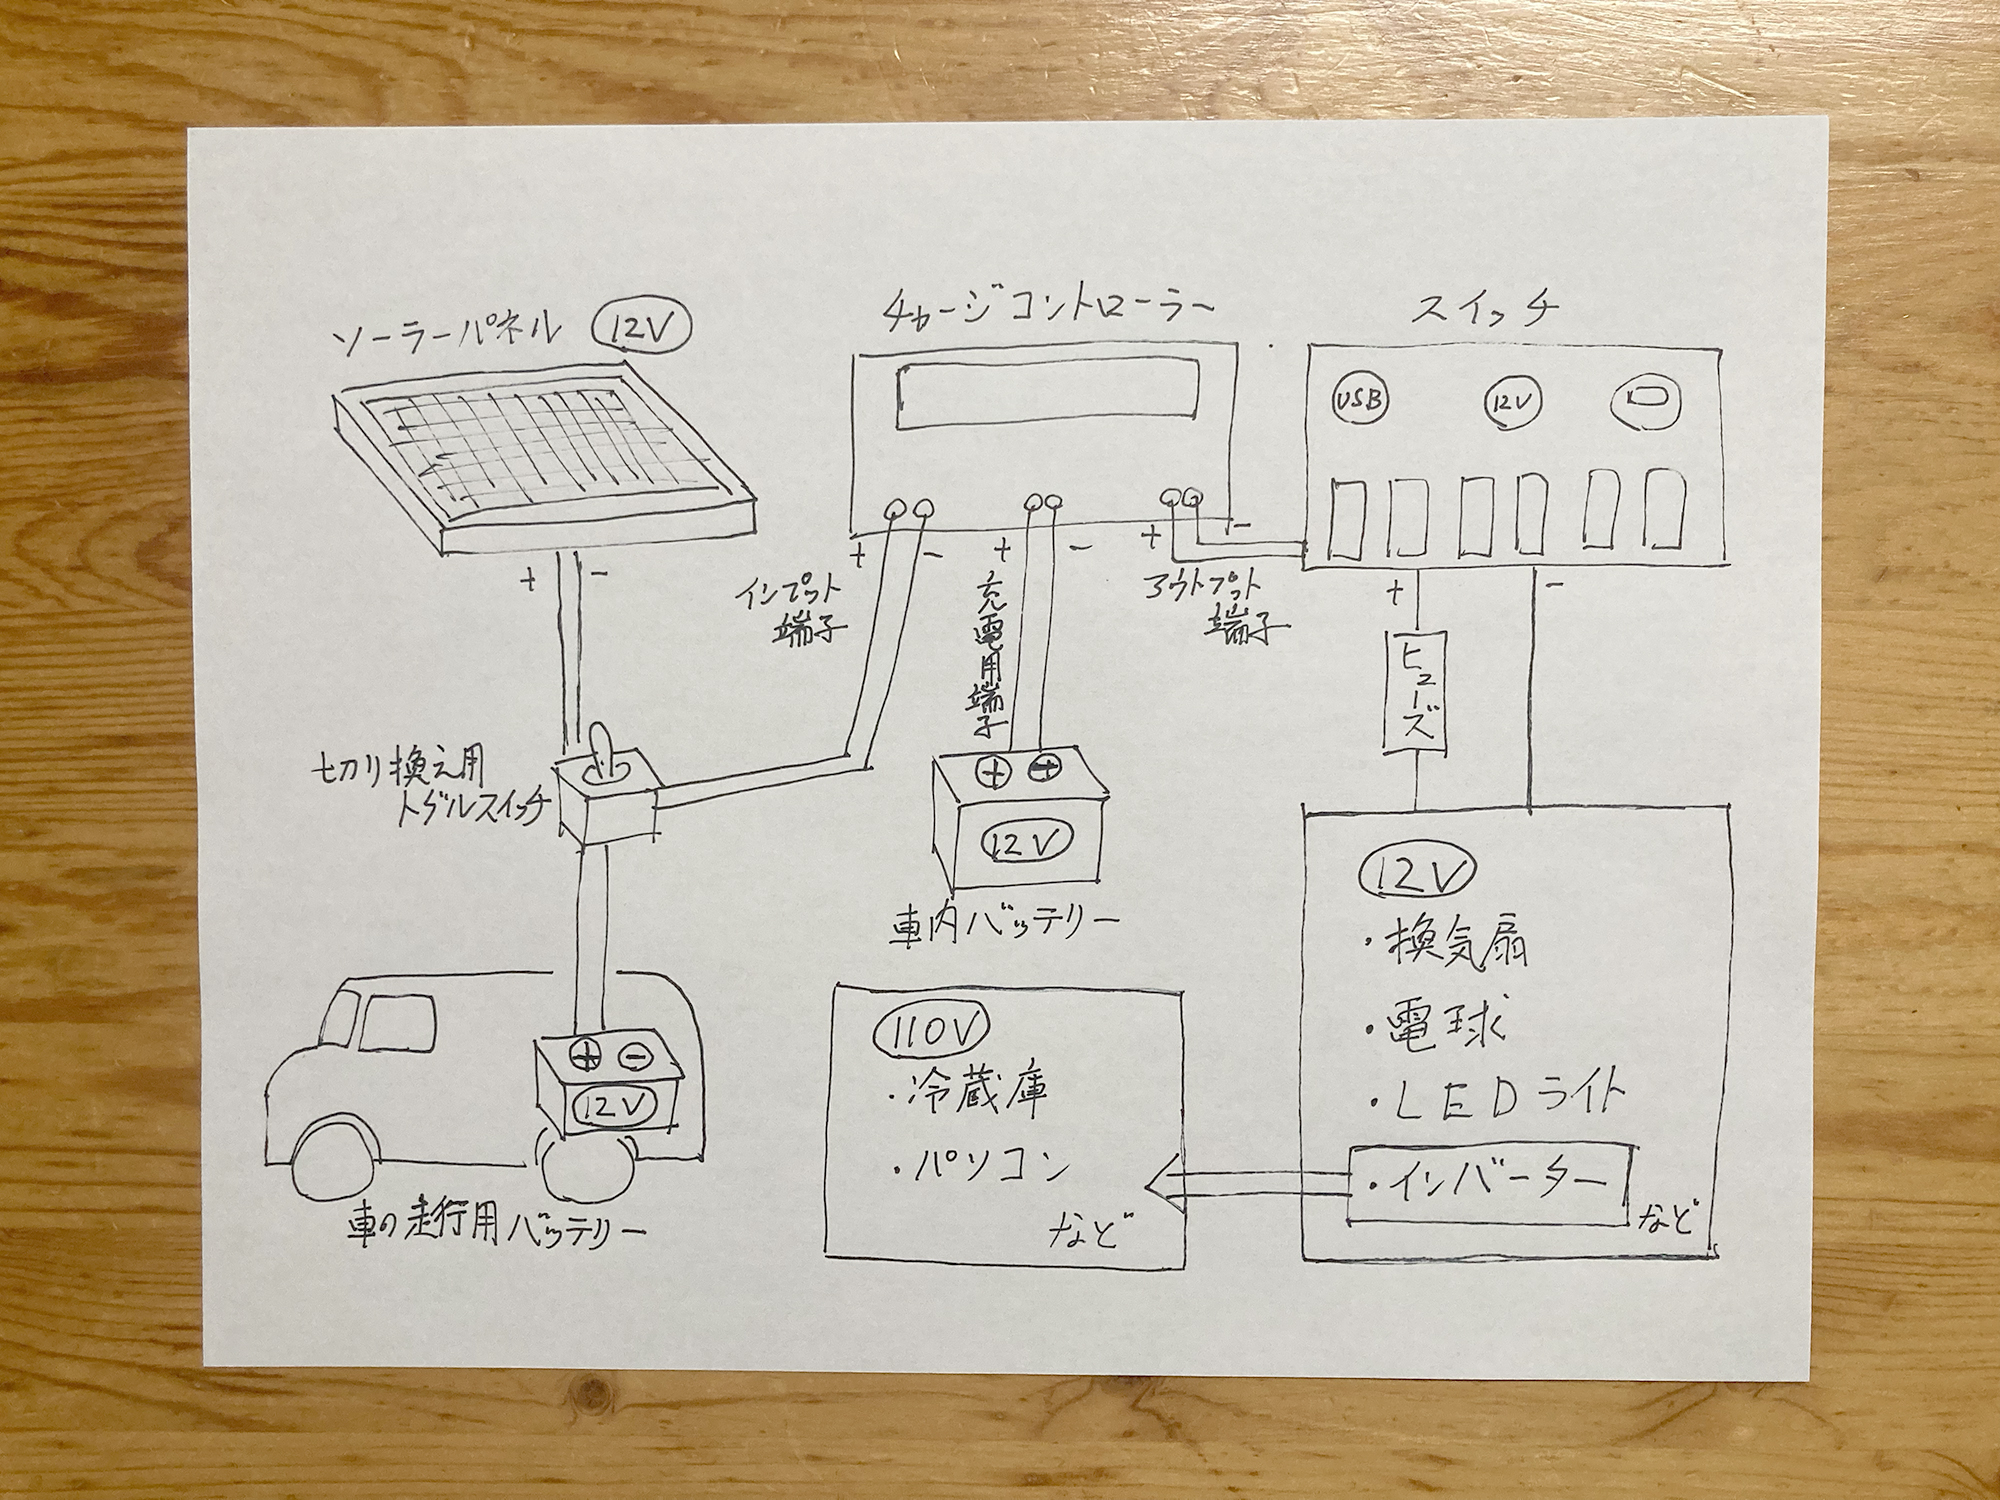 ソーラーパネル 12V
チャージコントローラー
スイッチ
USB
12V
+ -
インプット
端子
+ -
充電用端子
+ -
アウトプット
端子
+ -
ヒューズ
+ -
切り換え用
トグルスイッチ
+ -
12V
車の走行用バッテリー
+ -
12V
車内バッテリー
110V
・冷蔵庫
・パソコン
など
12V
・換気扇
・電球
・LEDライト
・インバーター
など